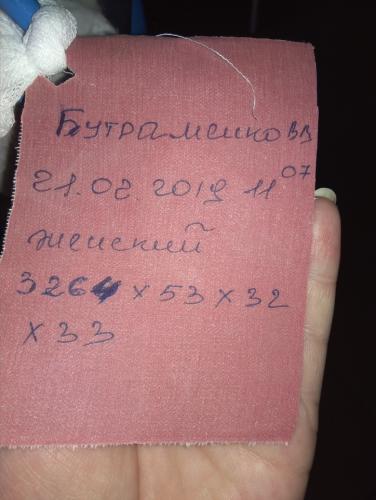 Бутраменко ВВ
21.02.2019 11 07
женский
3264 х 53 х 32
х 33